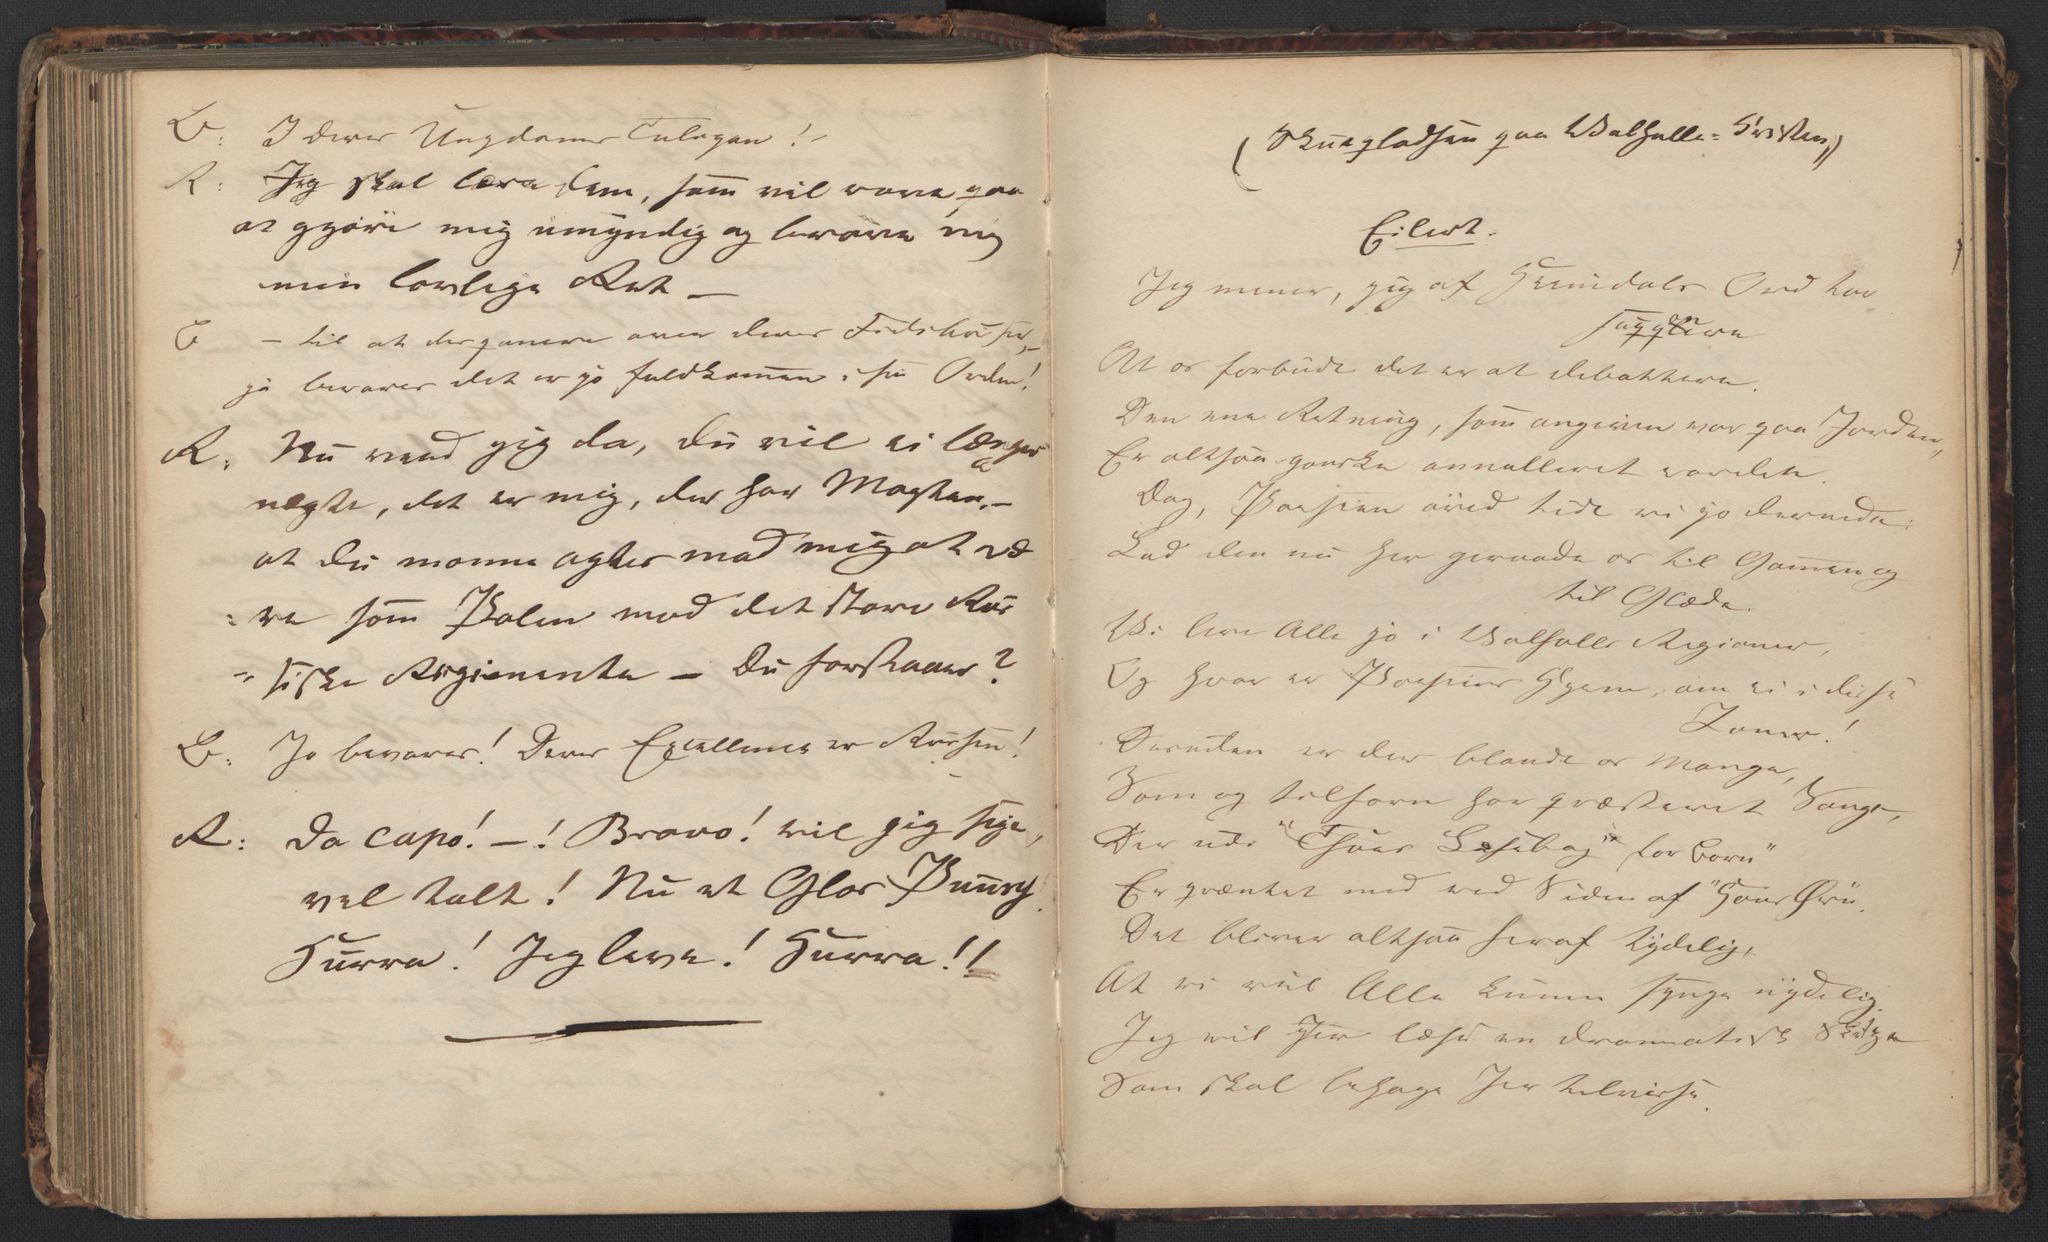 E: I deres Ungdoms Tulupan!-
R: Jeg skal lære dem, som vil vove paa
at gjöre mig umyndig og beröve mig
min lovlige Ret —
E — til at disponere over deres
ja bevares det er jo fuldkommen i sin Orden!
R. Nu veed jeg da, du vil ei længer
nægte, det er mig, der har Magten. —
at du monne agter med mig at væ
: re som Polen med det store Rus
" siske Regimente — Du forstaaer?
E: Jo bevares! Deres Excellence er Russen!
R: Da capo! — ! Bravo! vil jeg sige,
vel talt! Nu et Glas Punsch
Hurra! Jeg leve! Hurra!!
(Skuepladsen paa Valhalla=
Eilert.
Jeg mener, jeg af Heimdals Ord tør
suggerere
At os forbudt det er at debattere.
Den ene Retning, som angiven var paa Jorden,
Er altsaa ganske annulleret vorden.
Dog, Poesien øved tidt vi jo dernede:
Lad den nu her geraade os til Gammen og
til Glæde.
Vi leve Alle jo i Valhalls Regioner,
Og hvor er Poesiens Hjem, om ei i disse
Zoner!
Desuden er der blandt os Mange,
Som og tilforn har præsteret Sange,
Der udi "Thues Læsebog for Børn"
Er prentet ned ved Siden af "Hans Ørn".
Det bliver altsaa heraf tydelig,
At vi vil Alle kunne synge nydelig.
Jeg vil Jer læse en dramatisk Skitze
Som skal behage Jer tilvisse.